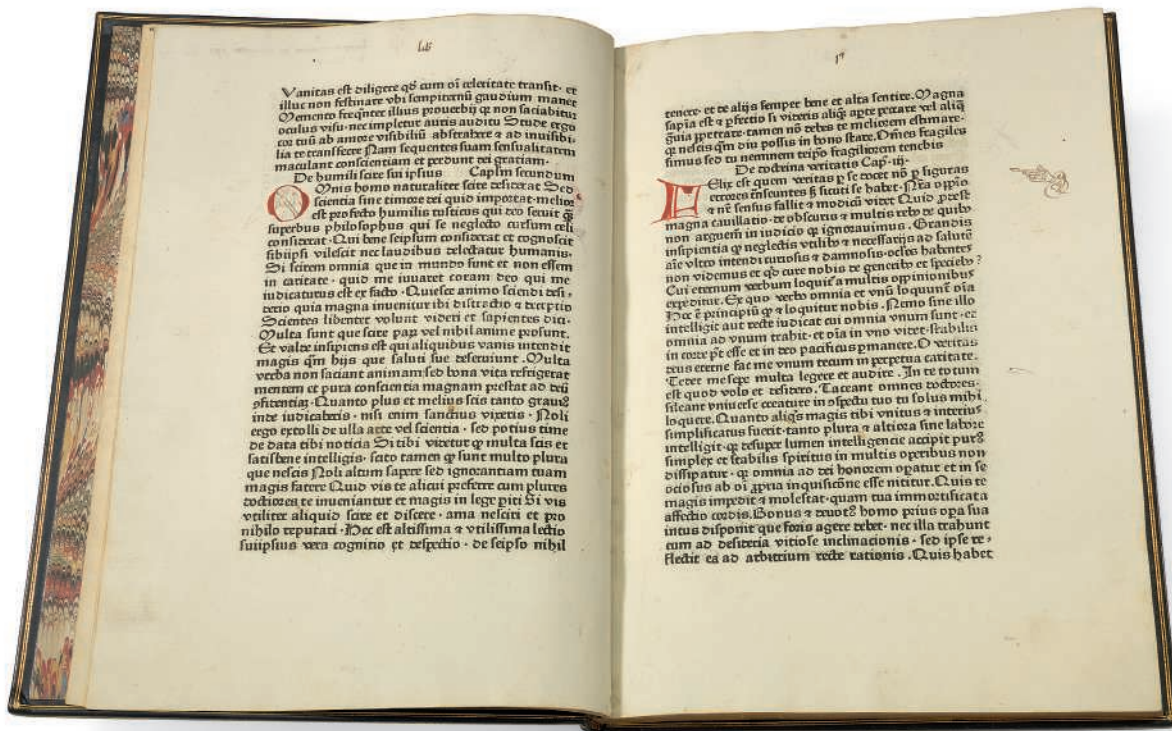 lib
Vanitas est diligere qđ cum oī celeritate transit· et
illuc non festinare vbi sempiternū gaudium manet
Memento freq̄nter illius prouerbij qꝫ non saciabitur
oculus visu· nec impletur auris auditu Stude ergo
cor tuū ab amore visibiliū abstrahere ⁊ ad inuisibi‐
lia te transferre Nam sequentes suam sensualitatem
maculant conscientiam et perdunt dei gratiam·
De humili scire sui ipsius Caplm secundum
Omnis homo naturaliter scire desiderat Sed
scientia sine timore dei quid importat· melior
est profecto humilis rusticus qui deo seruit q̄
superbus philosophus qui se neglecto cursum celi
considerat· Qui bene seipsum considerat et cognoscit
sibiipsi vilescit nec laudibus delectatur humanis·
Si scirem omnia que in mundo sunt et non essem
in caritate· quid me iuuaret coram deo qui me
iudicaturus est ex facto· Quiesce animo sciendi desi‐
derio quia magna inuenitur ibi distractio ⁊ deceptio
Scientes libenter volunt videri et sapientes dici·
Multa sunt que scire paꝝ vel nihil anime prosunt.
Et valde insipiens est qui aliquibus vanis intendit
magis qͫ hijs que saluti sue deseruiunt· Multa
verba non saciant animam sed bona vita refrigerat
mentem et pura conscientia magnam prestat ad deū
ꝯfitentiaꝫ· Quanto plus et melius scis tanto grauiꝰ
inde iudicaberis· nisi enim sanctius vixeris· Noli
ergo extolli de ulla arte vel scientia· sed potius time
de data tibi noticia Si tibi videtur qꝫ multa scis et
satisbene intelligis· scito tamen qꝫ sunt multo plura
que nescis Noli altum sapere sed ignorantiam tuam
magis fatere Quid vis te alicui preferre cum plures
doctiores te inueniantur et magis in lege ꝑiti Si vis
vtiliter aliquid scire et discere· ama nesciri et pro
nihilo reputari· Hec est altissima ⁊ vtilissima lectio
suiipsius vera cognitio et despectio· de seipso nihil
tenere· et de alijs semper bene et alta sentire. Magna
sapīa est ⁊ ꝑfectio si videris aliq̄ aꝑte peccare vel aliq̄
g̃uia ꝑpetrare· tamen nō debes te meliorem estimare·
qꝫ nescis qͫ diu possis in bono stare. Om̄es fragiles
simus sed tu neminem teip̄o fragiliorem tenebis
De doctrina veritatis Cap· iij·
Felix est quem veritas ꝑ se docet nō ꝑ figuras
⁊ nr̄ sensus fallit ⁊ modicū videt Quid ꝓdest
magna cauillatio· de obscuris ⁊ multis rebꝰ de quibꝰ
non arguem̃ in iudicio qꝫ ignorauimus. Grandis
insipientia qꝫ neglectis vtilibꝰ ⁊ necessarijs ad salutē
aīe vltro intendim̃ curiosis ⁊ damnosis· oc̄los habentes
non videmus et qđ cure nobis de generibꝰ et speciebꝰ?
Cui eternum verbum loquiꝉ a multis oppinionibus
expeditur. Ex quo verbo omnia et vnū loquunꝉ oīa
Hec ē principiū qꝫ ⁊ loquitur nobis. Nemo sine illo
intelligit aut recte iudicat cui omnia vnum sunt· et
omnia ad vnum trahit· et oīa in vno videt· stabilis
in corde pt̄ esse et in deo pacificus ꝑmanere. O veritas
deus eterne fac me vnum tecum in perpetua caritate.
Tedet me sepe multa legere et audire. In te totum
est quod volo et desidero. Taceant omnes doctores·
sileant vniuerse creature in ꝯspectu tuo tu solus mihi
loquere. Quanto aliq̄s magis tibi vnitus ⁊ interius
simplificatus fuerit· tanto plura ⁊ altiora sine labore
intelligit· qꝫ desuper lumen intelligencie accipit purꝰ
simplex et stabilis spiritus in multis operibus non
dissipatur· qꝫ omnia ad dei honorem oꝑatur et in se
ociosus ab oī ꝓpria inquisicōne esse nititur. Quis te
magis impedit ⁊ molestat· quam tua immortificata
affectio cordis. Bonus ⁊ deuotꝰ homo prius oꝑa sua
intus disponit que foris agere debet· nec illa trahunt
eum ad desideria vitiose inclinacionis· sed ipse re‐
flectit ea ad arbitrium recte rationis. Quis habet